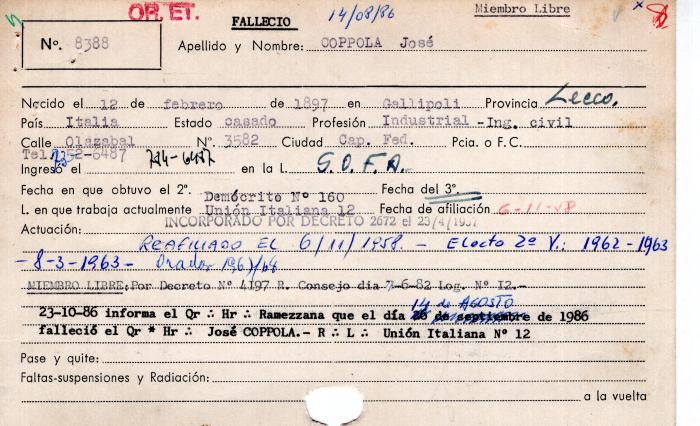 OR. ET. FALLECIO 14/08/86 Miembro Libre
Nº. 8388 Apellido y Nombre: COPPOLA José
Nacido el 12 de febrero de 1897 en Gallipoli Provincia Lecco.
País Italia Estado casado Profesión Industrial -Ing. civil
Calle Olazabal Nº. 3582 Ciudad Cap. Fed. Pcia. o F.C.
Tel. 52-6487 784-6487
Ingresó el en la L. G.O.F.A.
Fecha en que obtuvo el 2º. Fecha del 3º.
Demócrito Nº 160
L. en que trabaja actualmente Unión Italiana 12 Fecha de afiliación 6-11-58
INCORPORADO POR DECRETO 2672 el 23/4/1957
Actuación: REAFILIADO EL 6/11/1958. - Electo 2º V.: 1962-1963
- 8-3-1963 - Orador 1967/68
MIEMBRO LIBRE: Por Decreto Nº 4197 R. Consejo dia 7-6-82 Log. Nº 12.-
14 de AGOSTO
23-10-86 informa el Qr ∴ Hr ∴ Ramezzana que el día 26 de septiembre de 1986
falleció el Qr * Hr ∴ José COPPOLA.- R ∴ L ∴ Unión Italiana Nº 12
Pase y quite:
Faltas-suspensiones y Radiación:
a la vuelta